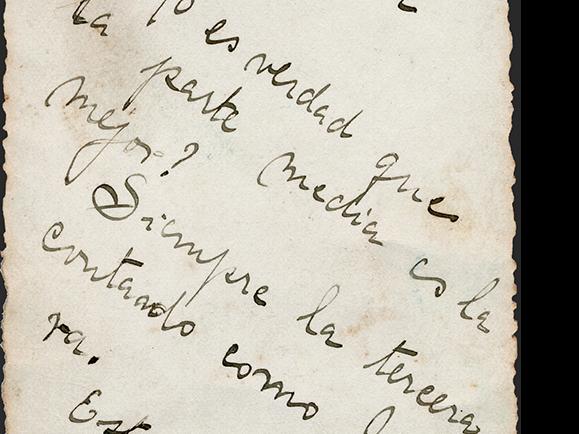 la 1º es verdad que
parte media es la
mejor?
Siempre la tercera
contando como
ra.
Est